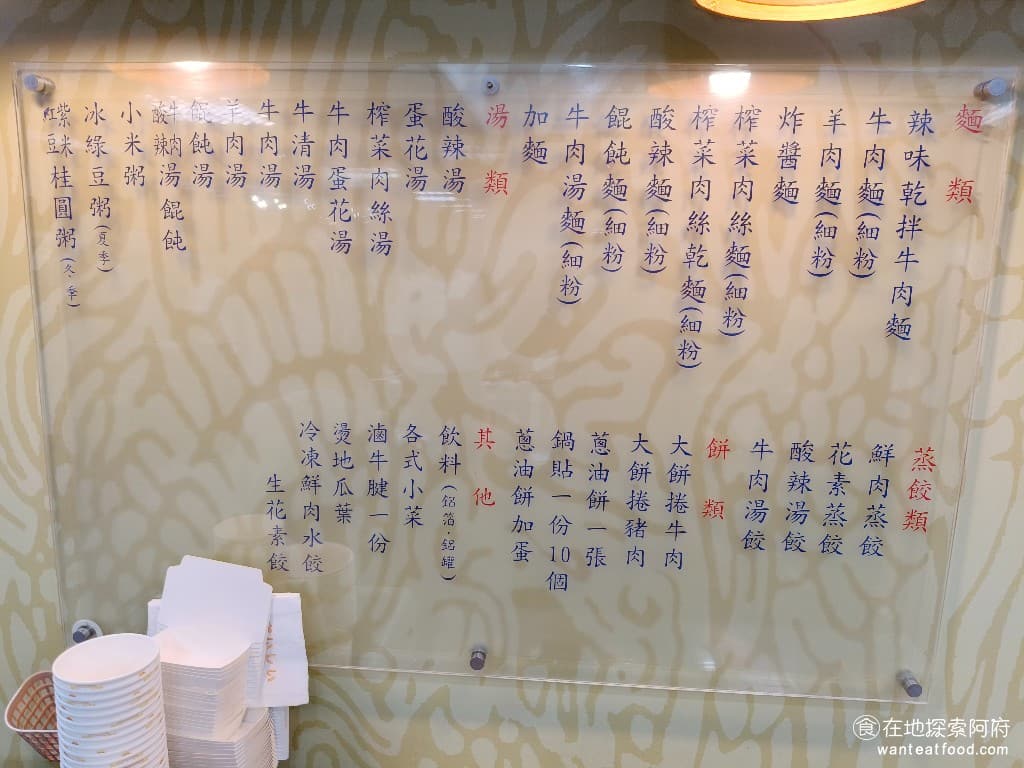 麵類
辣味乾拌牛肉麵
牛肉麵(細粉)
羊肉麵(細粉)
炸醬麵
榨菜肉絲麵(細粉)
榨菜肉絲乾麵(細粉)
酸辣麵(細粉)
餛飩麵(細粉)
牛肉湯麵(細粉)
加麵
湯類
酸辣湯
蛋花湯
榨菜肉絲湯
牛肉蛋花湯
牛清湯
牛肉湯
羊肉湯
餛飩湯
牛肉酸辣湯餛飩
小米粥
冰綠豆粥(夏季)
紫米紅豆桂圓粥(冬季)
蒸餃類
鮮肉蒸餃
花素蒸餃
酸辣湯餃
牛肉湯餃
餅類
大餅捲牛肉
大餅捲豬肉
蔥油餅一張
鍋貼一份10個
蔥油餅加蛋
其他
飲料(鋁箔.鋁罐)
各式小菜
滷牛腱一份
燙地瓜葉
冷凍鮮肉水餃
生花素餃
食在地探索阿府
wanteatfood.com